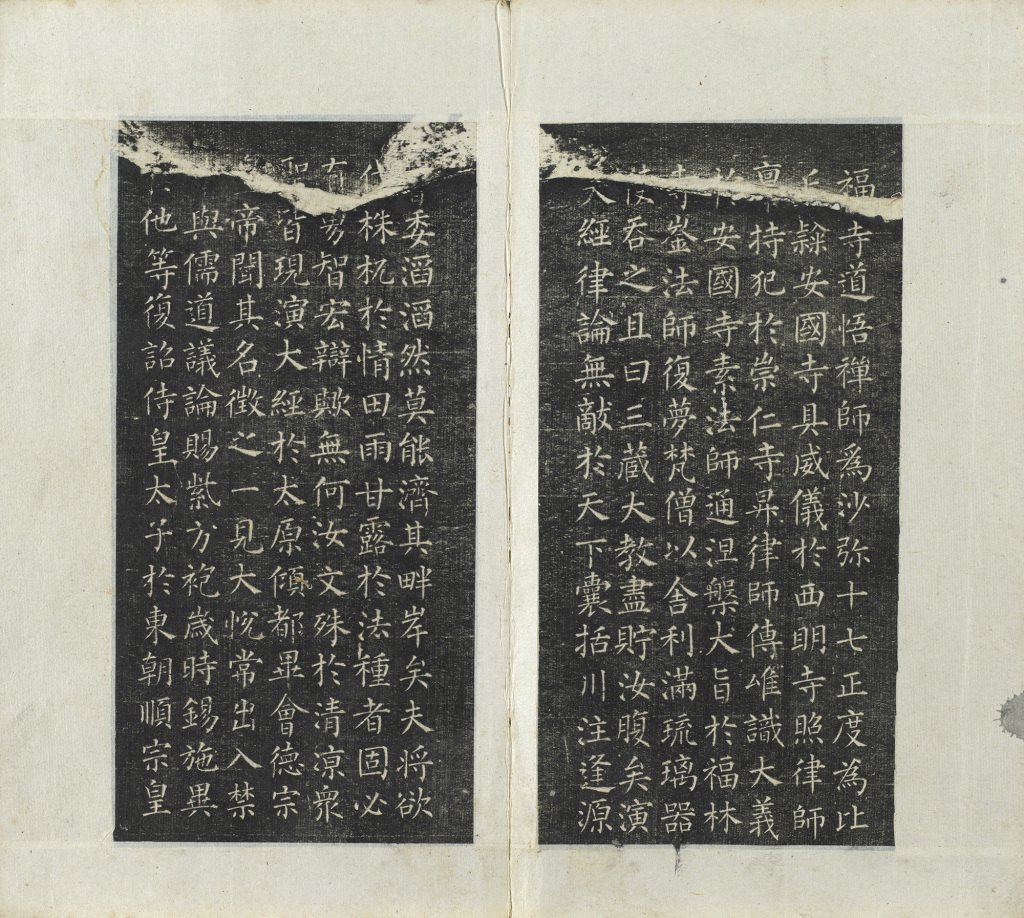 福寺道悟禪師爲沙弥十七正度為比
隸安國寺具威儀於西明寺照律師
稟持犯於崇仁寺昇律師傳唯識大義
安國寺素法師通涅槃大旨於福林
寺崟法師復夢梵僧以舍利滿琉璃器
吞之且曰三藏大教盡貯汝腹矣演
經律論無敵於天下囊括川注逢源
委滔滔然莫能濟其畔岸矣夫將欲
伐株杌於情田雨甘露於法種者固必
有勇智宏辯歟無何汝文殊於清凉衆
聖皆現演大經於太原傾都畢會德宗
帝聞其名徵之一見大悅常出入禁
與儒道議論賜紫方袍歲時錫施異
他等復詔侍皇太子於東朝順宗皇